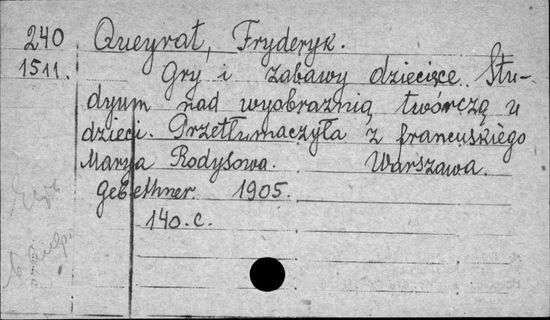 240 Queyrat, Fryderyk.
1511. Gry i zabawy dziecięce. Stu-
dyum nad wyobraznią twórczą u
dzieci. Przetłumaczyła z francuskiego
Marya Rodysowa. Warszawa.
Gebethner. 1905.
140. c.